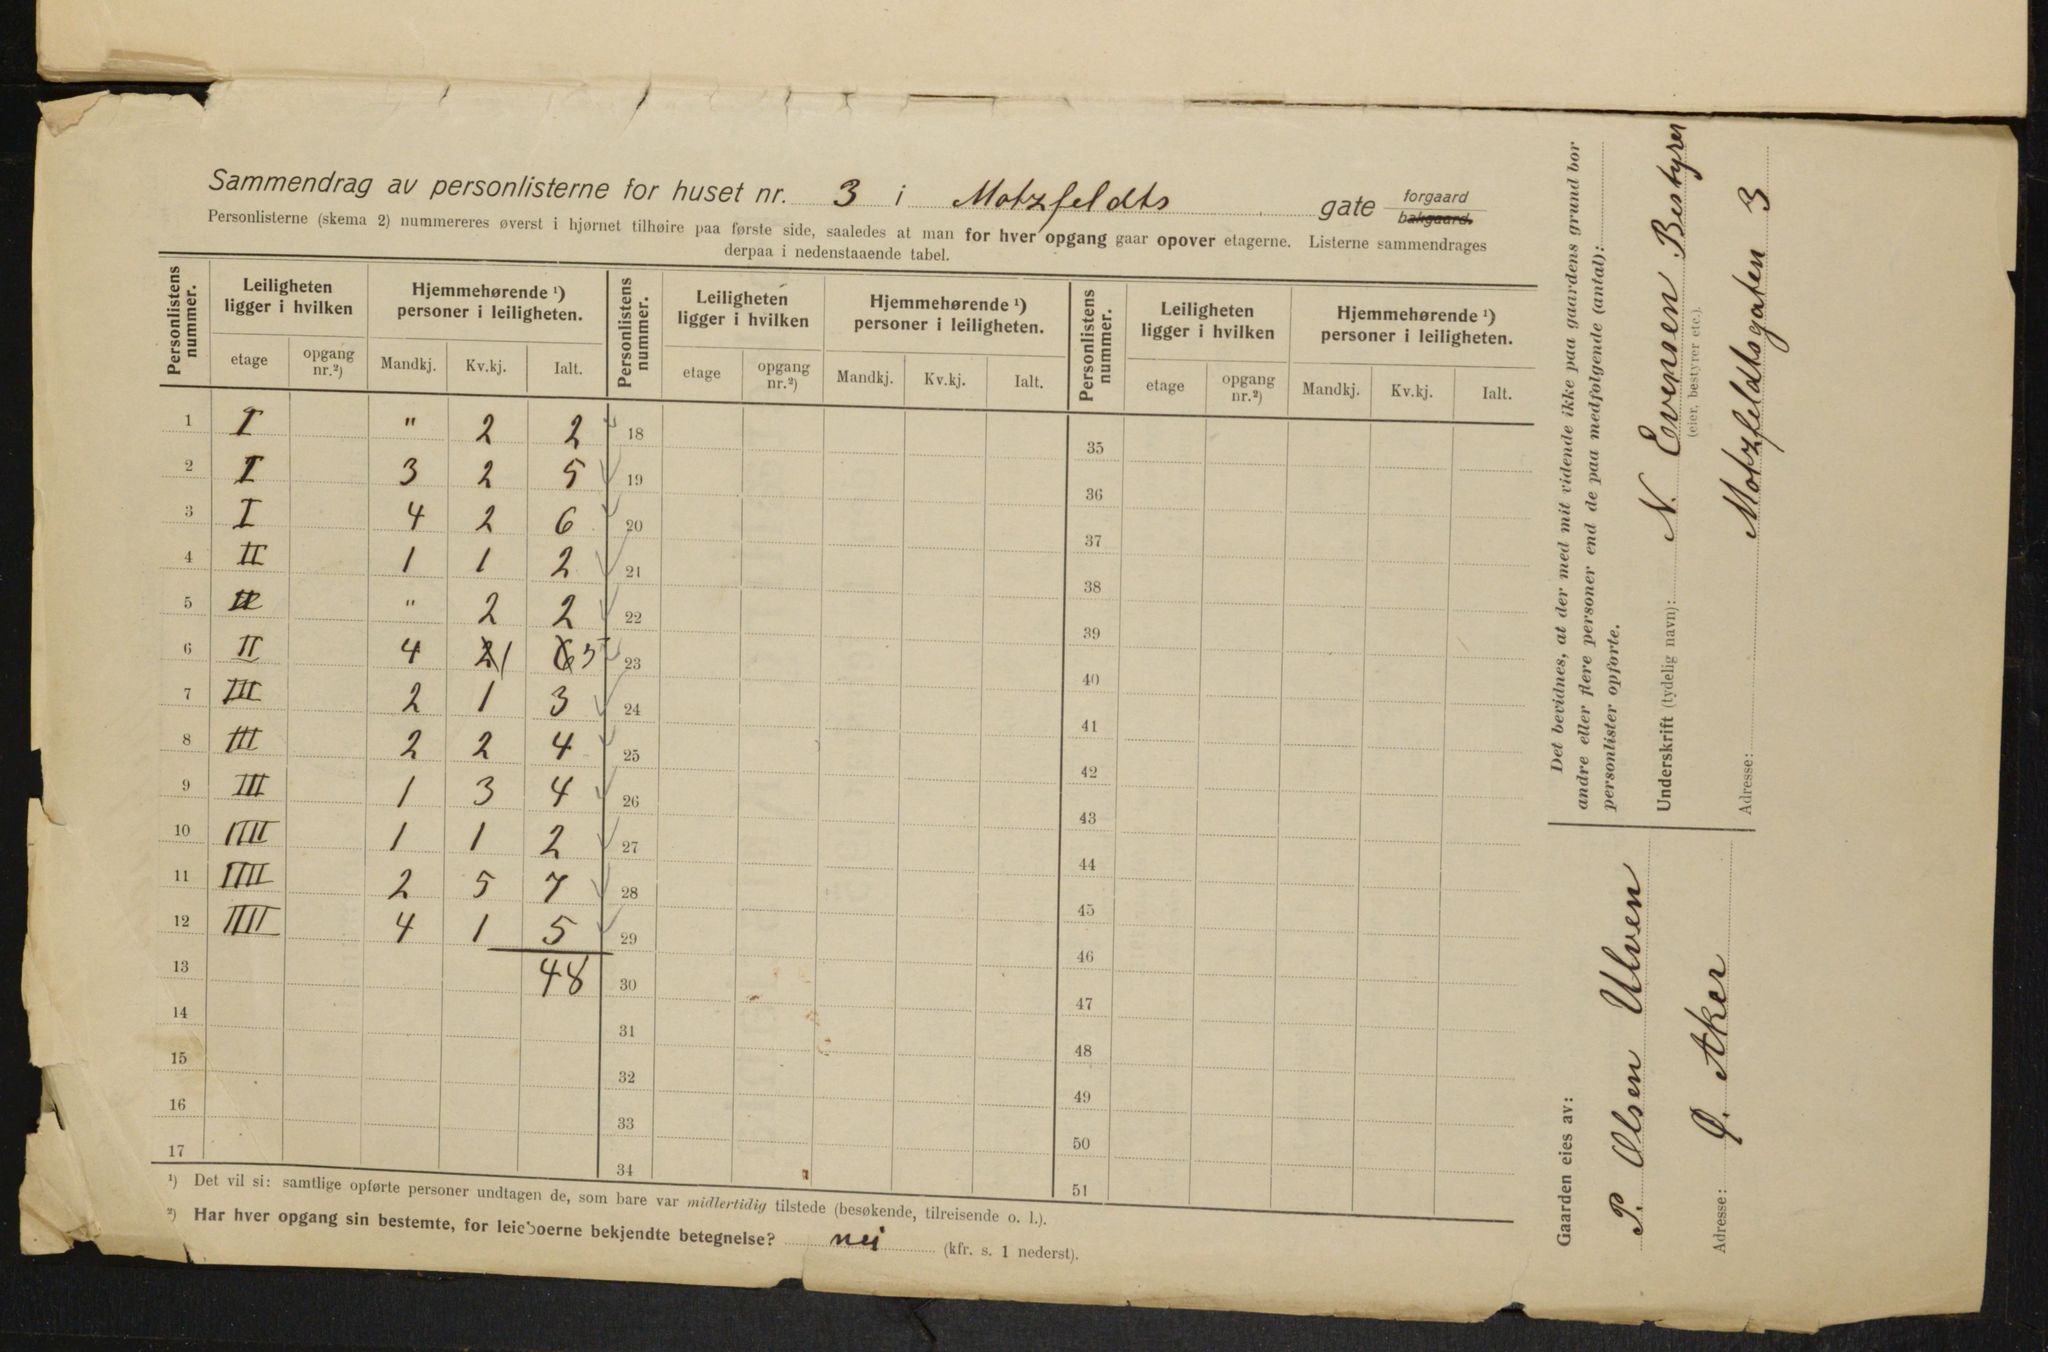 Sammendrag av personlisterne for huset nr. 3 i Motzfeldts gate forgaard bakgaard.
Personlisterne (skema 2) nummereres øverst i hjørnet tilhøire paa første side, saaledes at man for hver opgang gaar opover etagerne. Listerne sammendrages
derpaa i nedenstaaende tabel.
Personlistens nummer. Leiligheten ligger i hvilken Hjemmehørende ¹) personer i leiligheten. Personlistens nummer. Leiligheten ligger i hvilken Hjemmehørende ¹) personer i leiligheten. Personlistens nummer. Leiligheten ligger i hvilken Hjemmehørende ¹) personer i leiligheten.
etage opgang nr.²) Mandkj. Kv.kj. Ialt. etage opgang nr.²) Mandkj. Kv.kj. Ialt. etage opgang nr.²) Mandkj. Kv.kj. Ialt.
1 I " 2 2 18 35
2 I 3 2 5 19 36
3 I 4 2 6 20 37
4 II 1 1 2 21 38
5 II " 2 2 22 39
6 II 4 2 1 6 5 23 40
7 III 2 1 3 24 41
8 III 2 2 4 25 42
9 III 1 3 4 26 43
10 IIII 1 1 2 27 44
11 IIII 2 5 7 28 45
12 IIII 4 1 5 29 46
13 48 30 47
14 31 48
15 32 49
16 33 50
17 34 51
¹) Det vil si: samtlige opførte personer undtagen de, som bare var midlertidig tilstede (besøkende, tilreisende o. l.).
²) Har hver opgang sin bestemte, for leieboerne bekjendte betegnelse? nei (kfr. s. 1 nederst).
Det bevidnes, at der med mit vidende ikke paa gaardens grund bor
andre eller flere personer end de paa medfølgende (antal):
personlister opførte.
Underskrift (tydelig navn): N. Evensen Bestyrer
(eier, bestyrer etc.).
Adresse: Motzfeldtsgaten 3
Gaarden eies av:
P. Olsen Ulven
Adresse: Ø. Aker